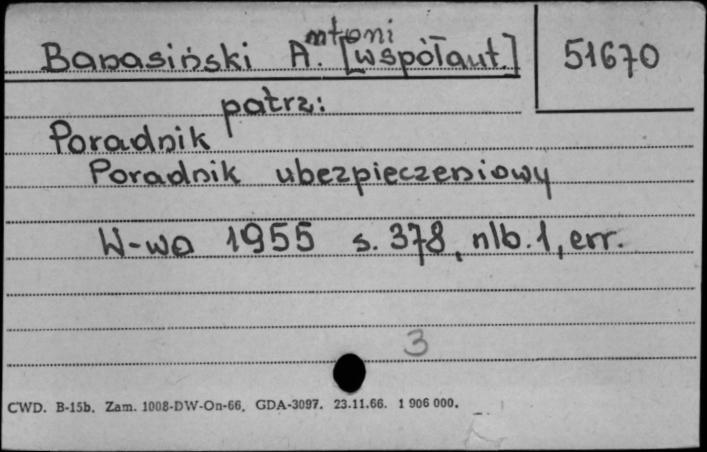 Banasiński A.ntoni [współaut.]
51670
patrz:
Poradnik
Poradnik ubezpieczeniowy
W-wa 1955 s. 378, nlb. 1, err.
3
CWD. B-15b. Zam. 1008-DW-On-66. GDA-3097. 23.11.66. 1 906 000.